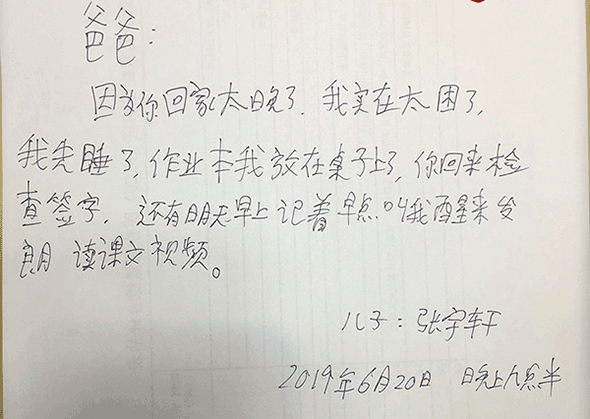 爸爸:
因为你回家太晚了,我实在太困了,
我先睡了,作业本我放在桌子上了,你回来检
查签字,还有明天早上记着早点叫我醒来发
朗读课文视频。
儿子:张宇轩
2019年6月20日 晚上八点半